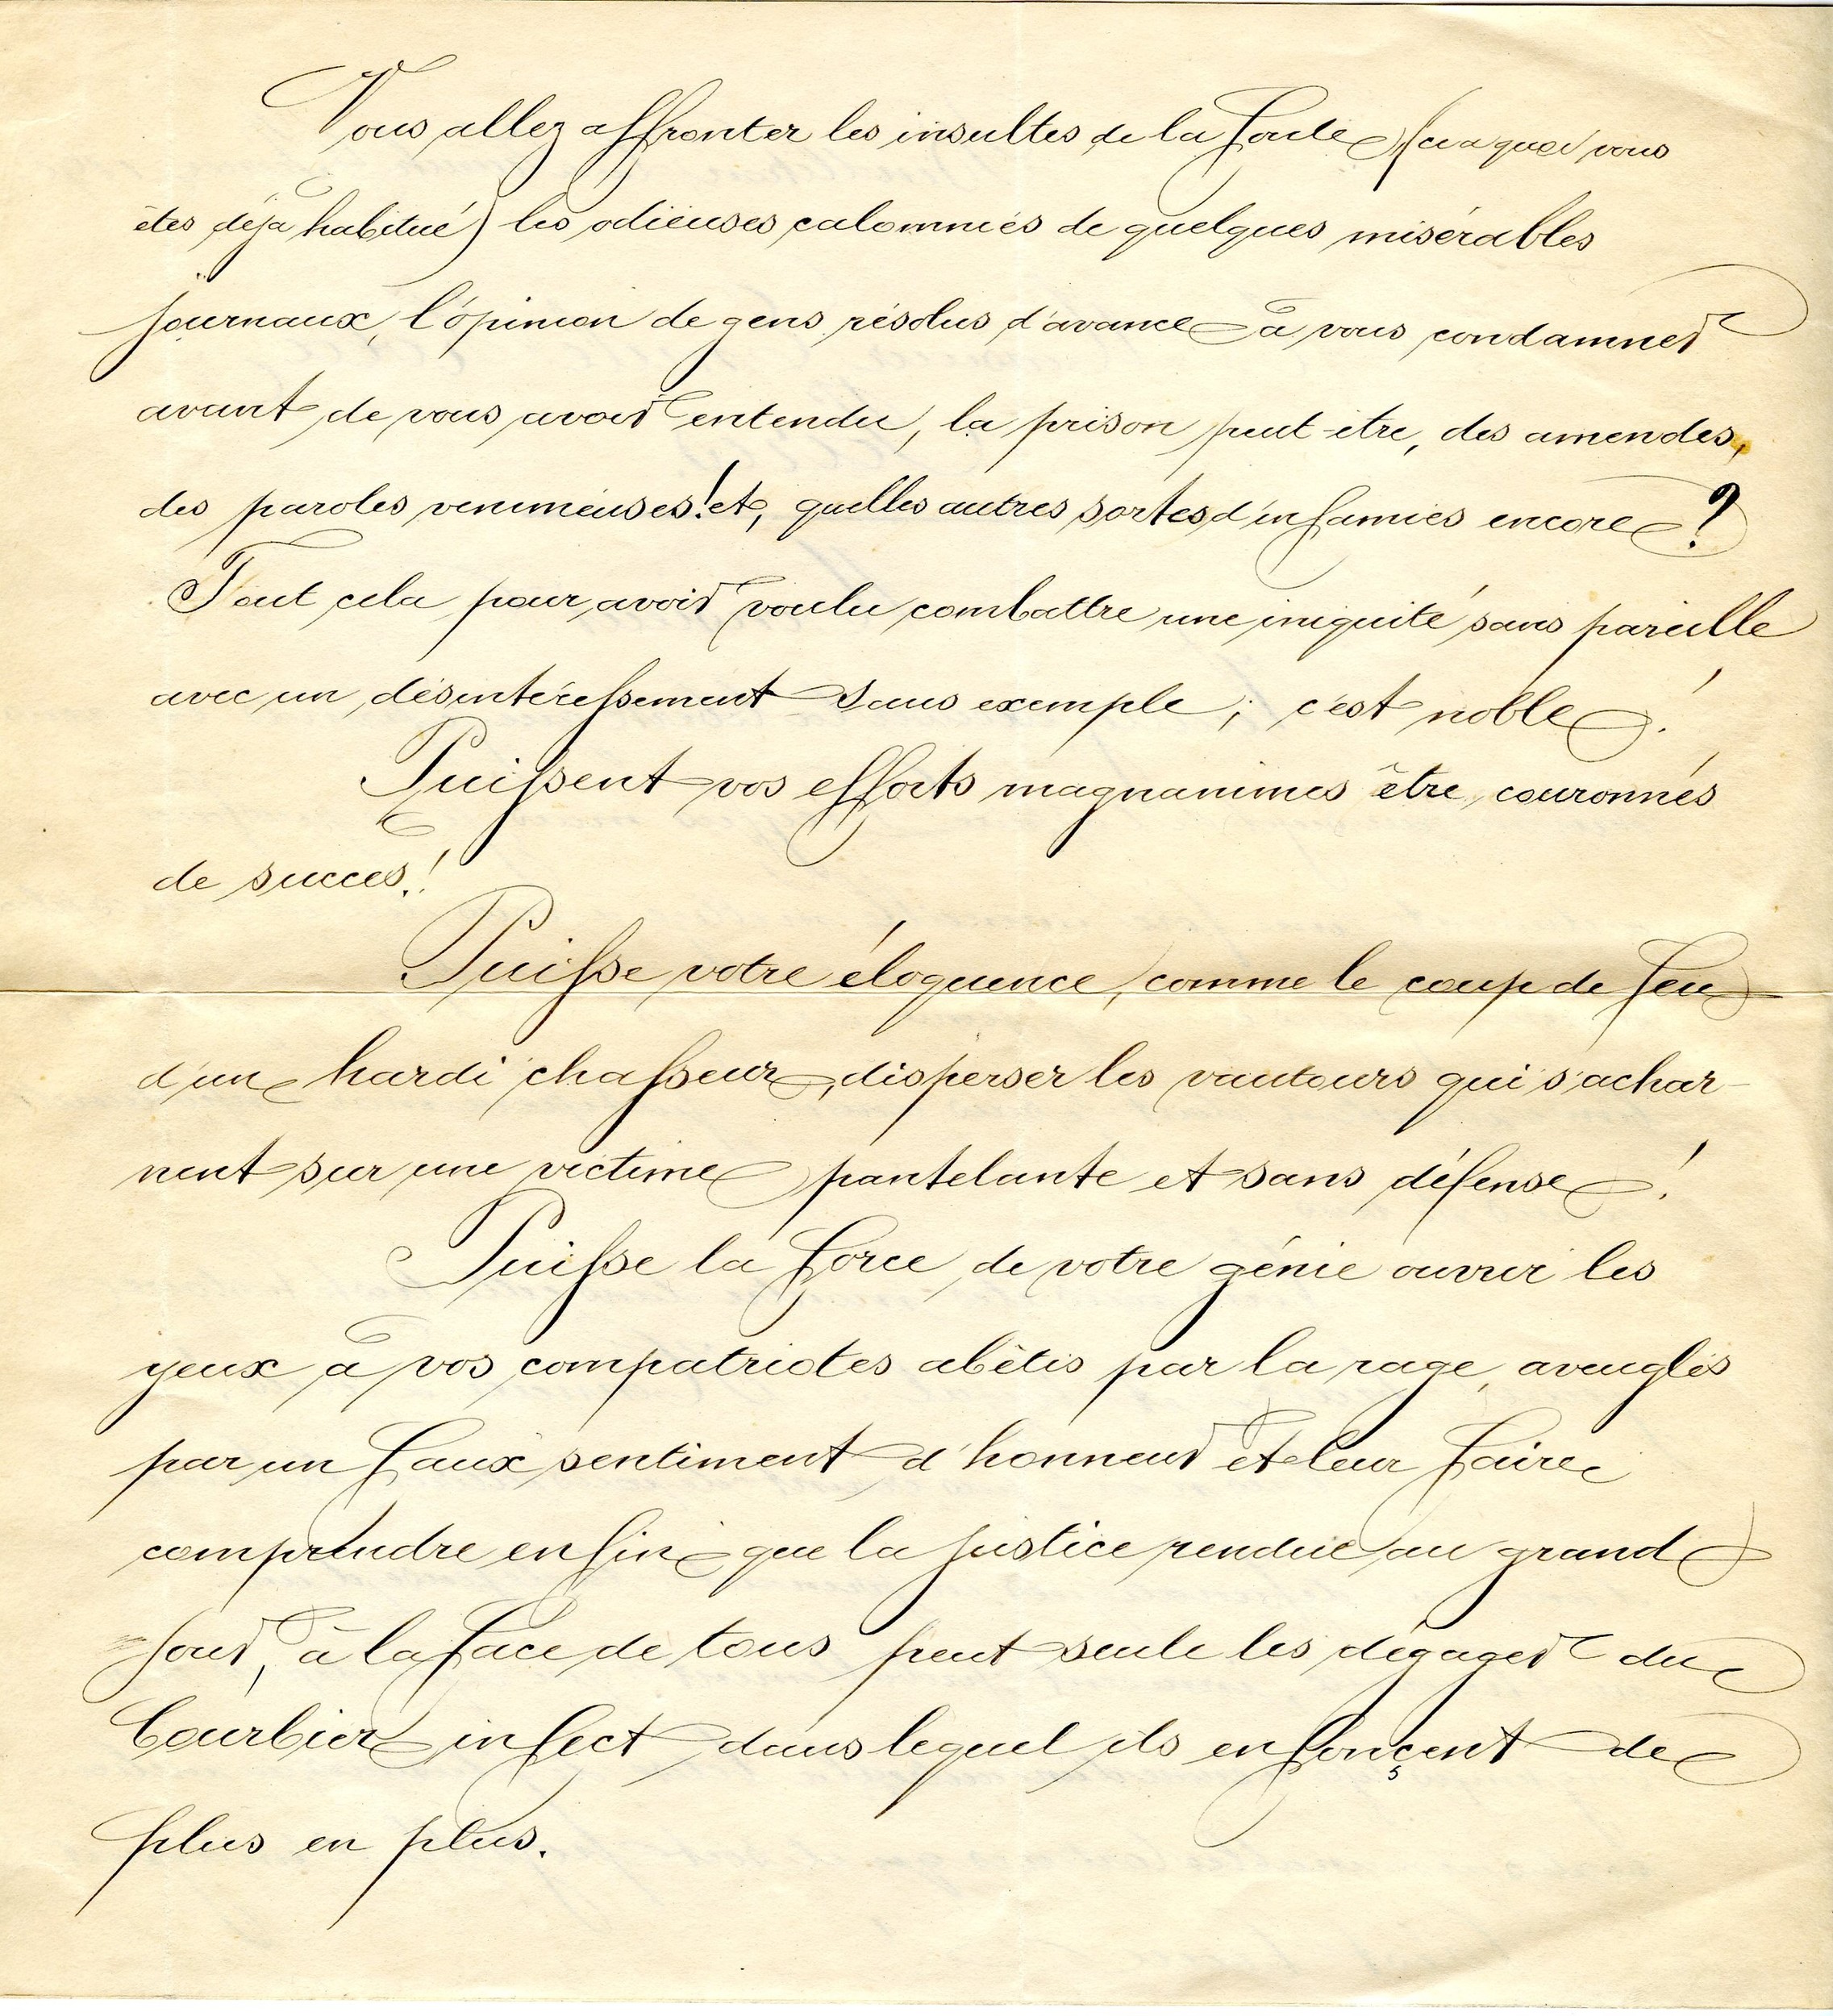 Vous allez affronter les insultes de la foule (ce a quoi vous
êtes déjà habitué) les odieuses calomnies de quelques misérables
journaux, l'opinion de gens résolus d'avance à vous condamner
avant de vous avoir entendu, la prison peut-être, des amendes,
des paroles venimeuses! et, quelles autres sortes d'infamies encore?
Tout cela pour avoir voulu combattre une iniquité sans pareille
avec un désintéressement sans exemple; c'est noble!
Puissent vos efforts magnanimes être couronnés
de succès!
Puisse votre éloquence, comme le coup de feu
d'un hardi chasseur, disperser les vautours qui s'achar-
nent sur une victime pantelante et sans défense!
Puisse la force de votre génie ouvrir les
yeux à vos compatriotes abêtis par la rage, aveuglés
par un faux sentiment d'honneur et leur faire
comprendre enfin que la justice rendue au grand
jour, à la face de tous peut seule les dégager du
bourbier infect dans lequel ils enfonçent de
plus en plus.